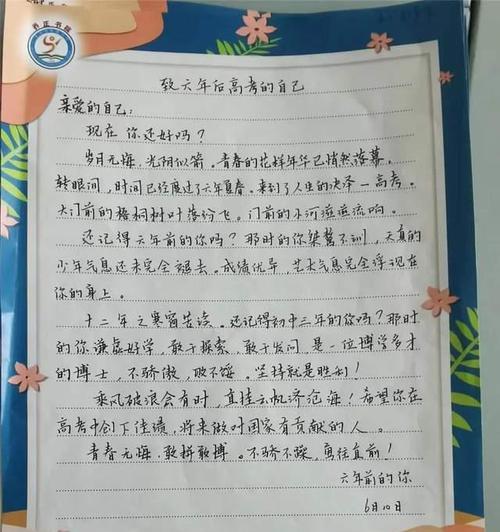 致六年后高考的自己
亲爱的自己:
现在你还好吗?
岁月无悔,光阴似箭。青春的花样年华已悄然落幕。
转眼间,时间已经度过了六年夏春。来到了人生的决择一高考。
大门前的梧桐树叶落纷飞。门前的小河滋滋流响。
还记得六年前的你吗?那时的你桀骜不训,天真的
少年气息还未完全褪去。成绩优异,艺术气息完全浮现在
你的身上。
十二年之寒窗苦读。还记得初中三年的你吗?那时
的你谦虚好学,敢于探索,敢于发问,是一位博学多才
的博士,不骄傲,败不馁。坚持就是胜利!
乘风破浪会有时,直挂云帆济沧海!希望你在
高考中创下佳绩,将来做对国家有贡献的人。
青春无悔,敢拼敢搏。不骄不躁,勇往直前!
六年前的你
6月10日